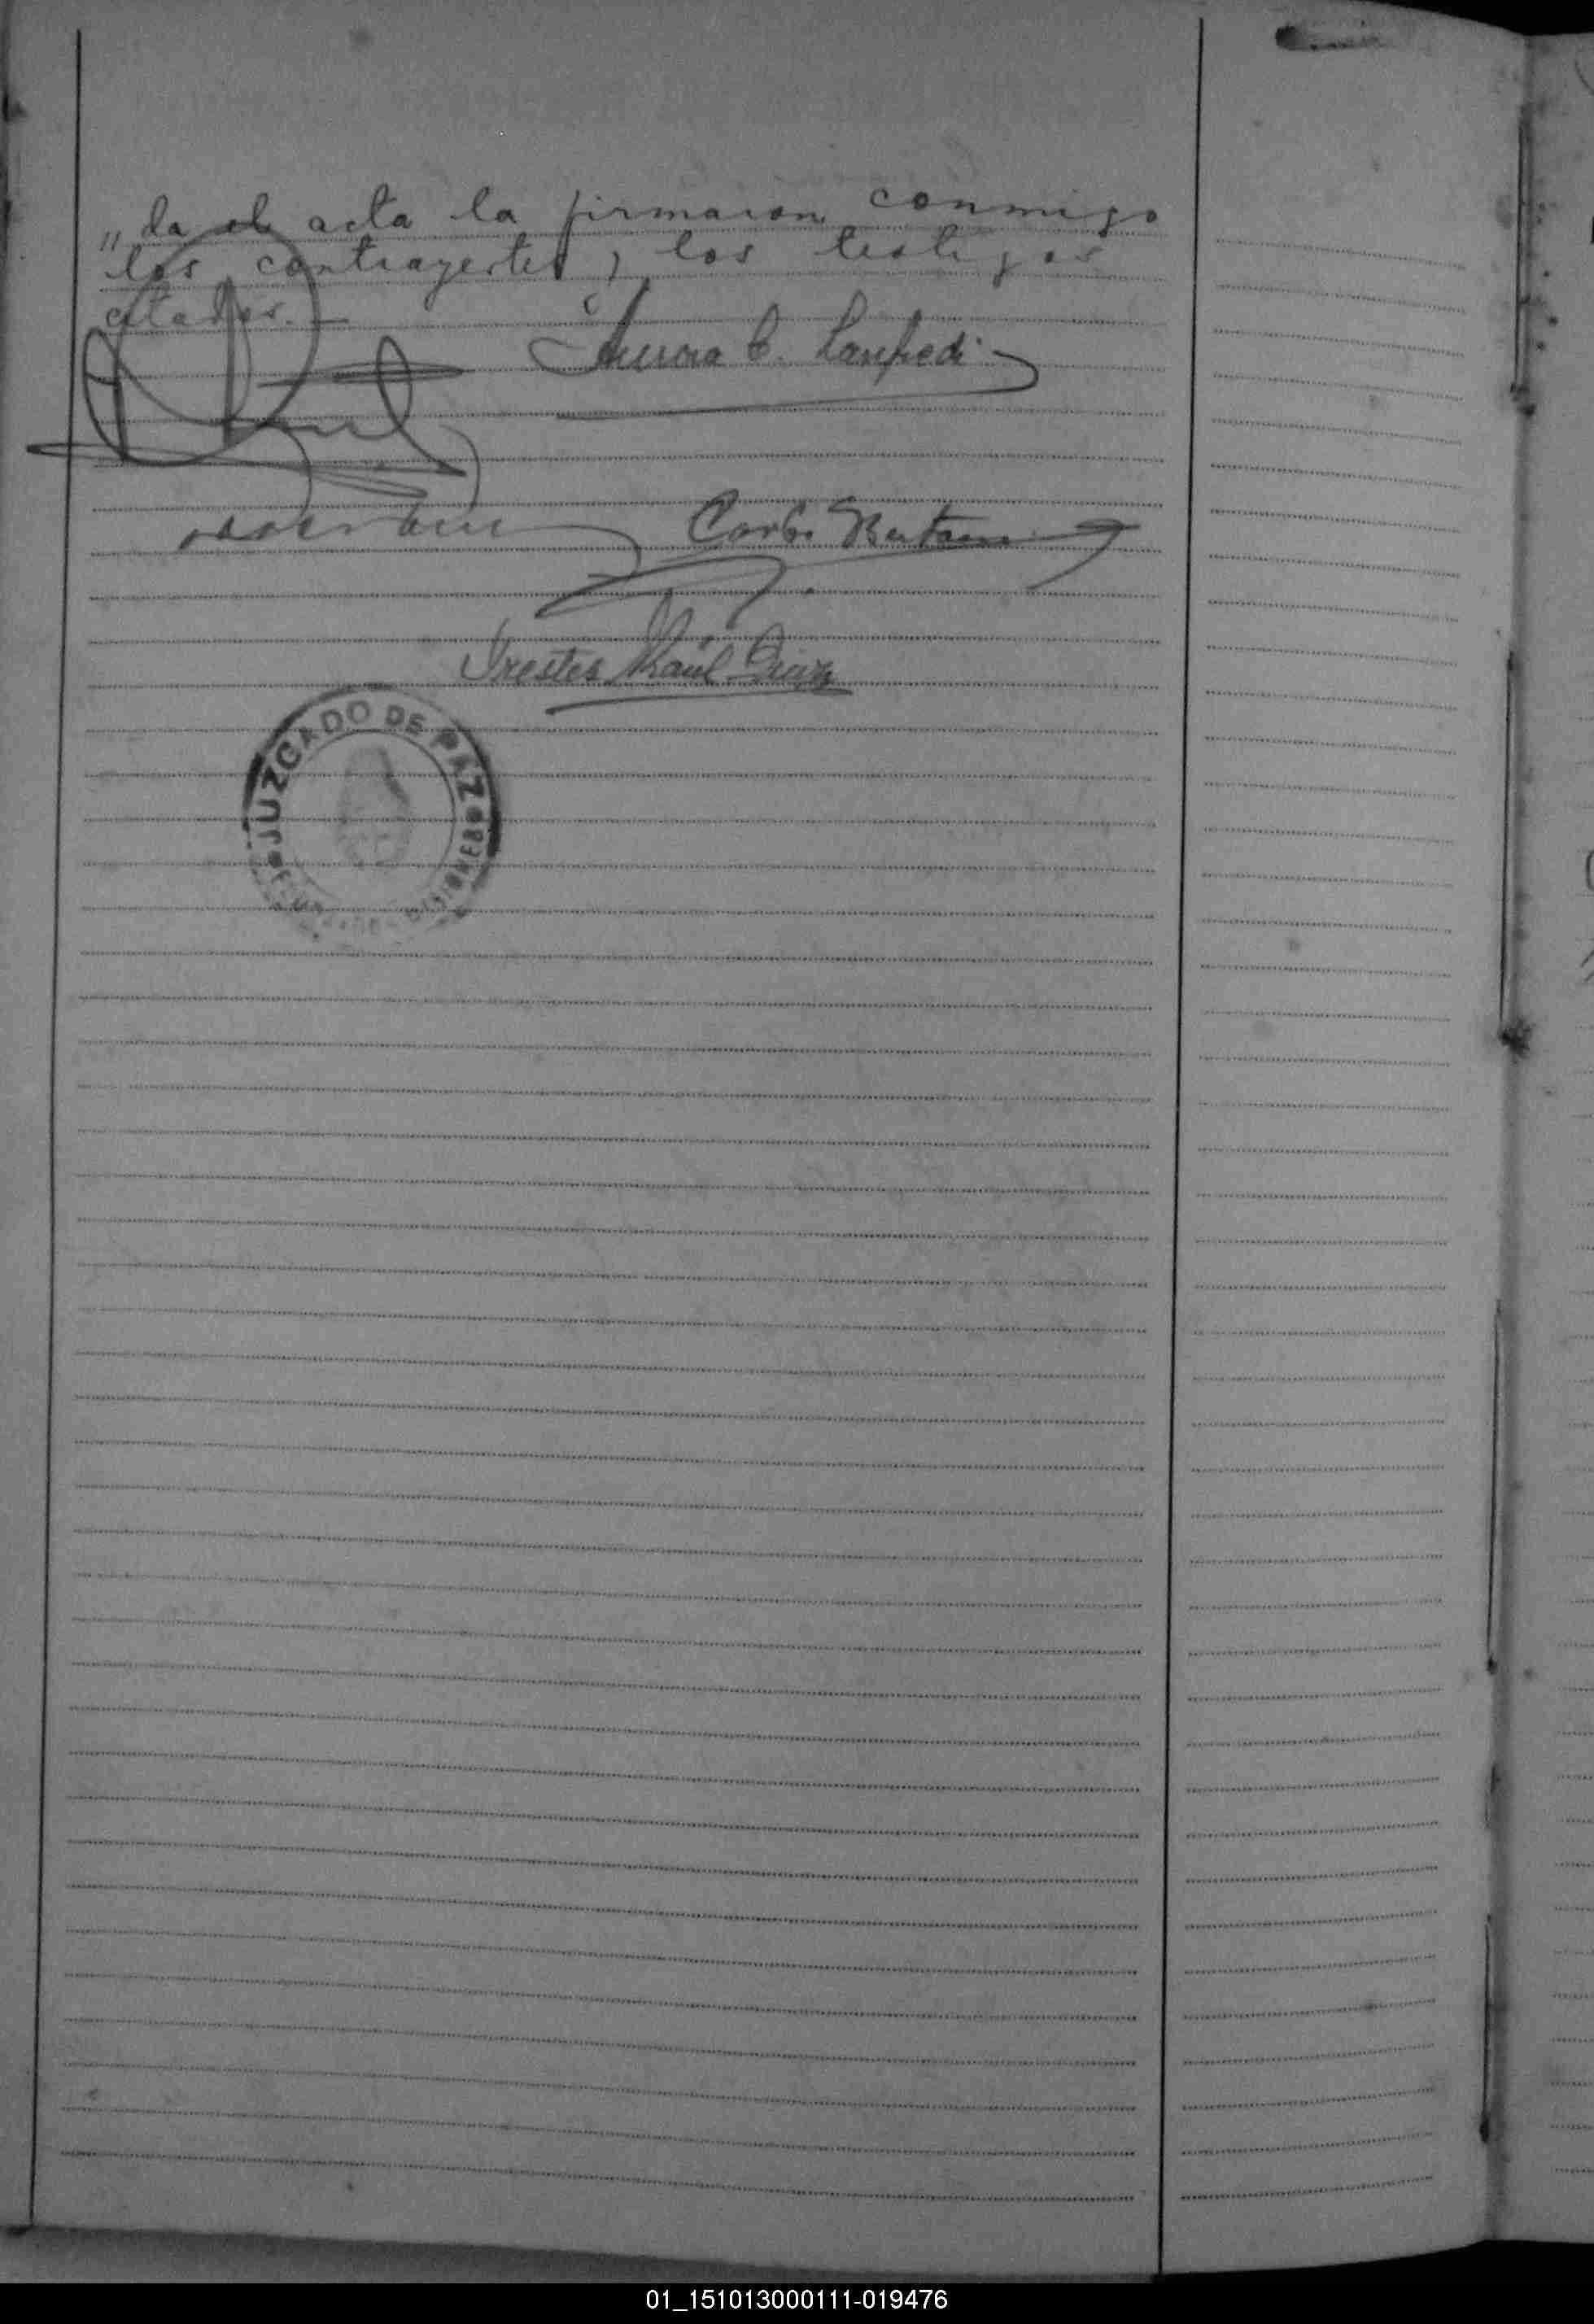 „ da el acta la firmaron conmigo
los contrayentes y los testigos
citados. —
Aurora C. Lanfredi
Carlos
Orestes Raúl
JUZGADO DE PAZ
MISIONES
01_151013000111-019476